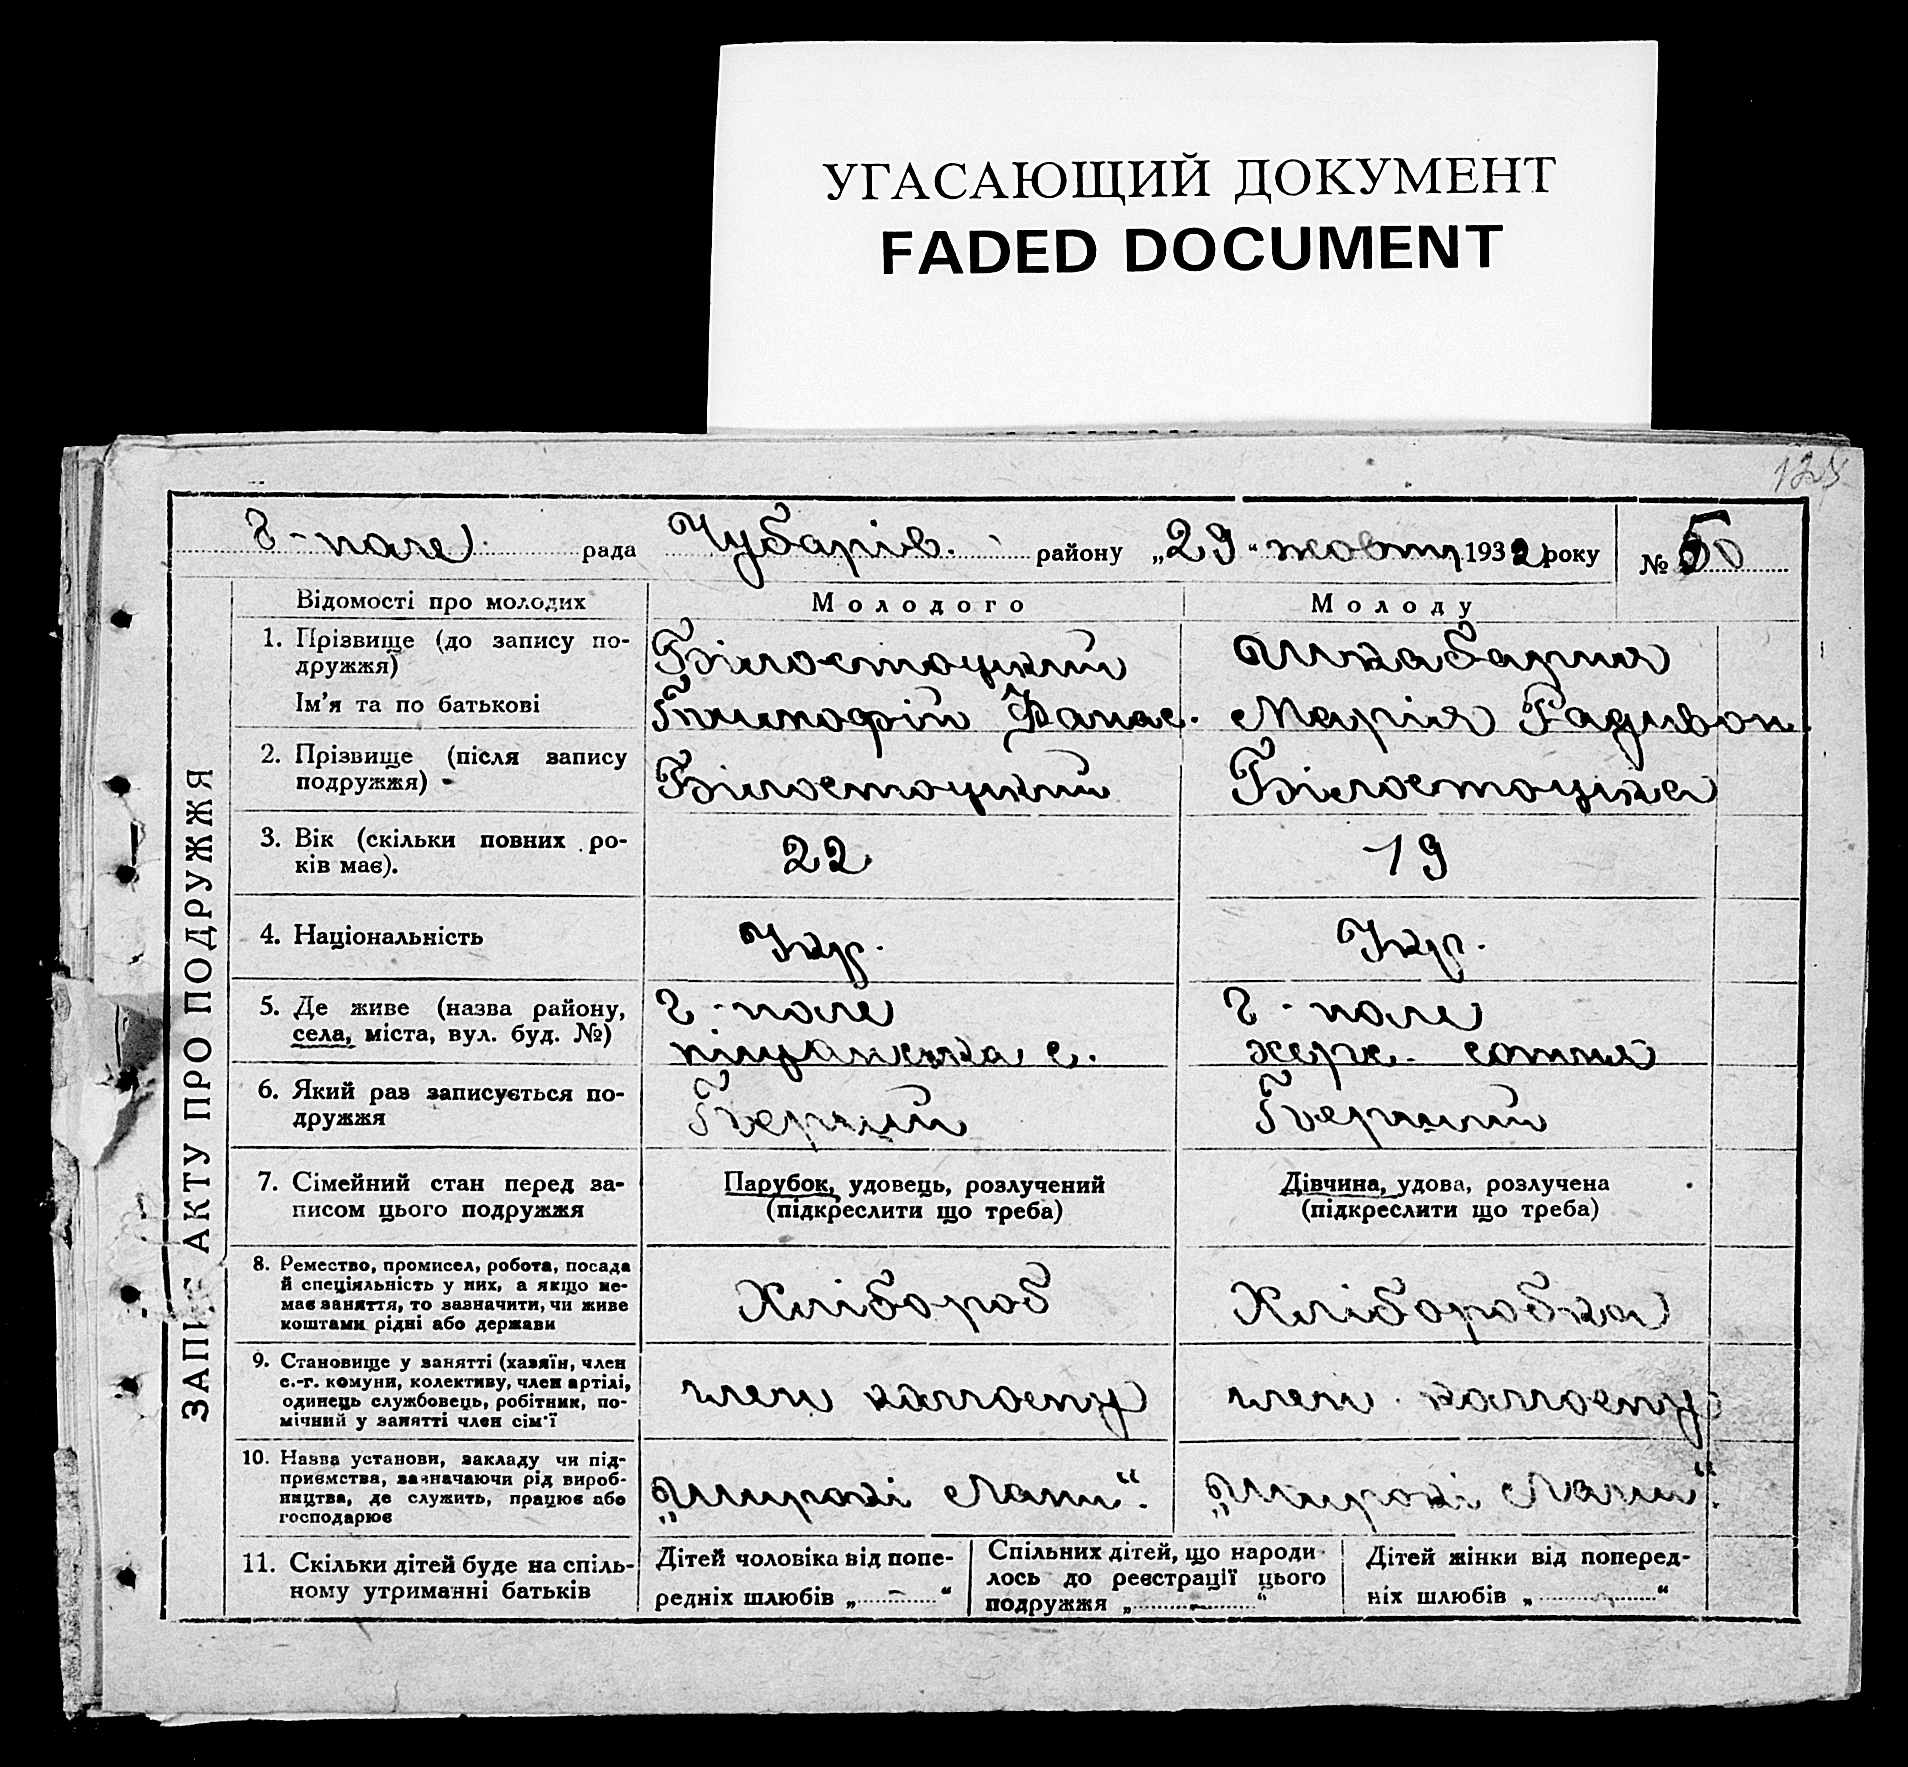 УГАСАЮЩИЙ ДОКУМЕНТ
FADED DOCUMENT
ЗАПИС АКТУ ПРО ПОДРУЖЖЯ
Г-поле рада Чубарів. району „29“ жовтн 1932 року № 50
Відомості про молодих Молодого Молоду
1. Прізвище (до запису по-
дружжя)
Білостоцкий Шкабарня
Ім'я та по батькові
Тимофій Панас. Марія Радивон.
2. Прізвище (після запису
подружжя)
Білостоцкий Білостоцка
3. Вік (скільки повних ро-
ків має).
22 19
4. Національність Укр. Укр.
5. Де живе (назва району,
села, міста, вул. буд. №)
Г-поле Г-поле
с. херс. сотня
6. Який раз записується по-
дружжя
Перший Перший
7. Сімейний стан перед за-
писом цього подружжя
Парубок, удовець, розлучений
(підкреслити що треба)
Дівчина, удова, розлучена
(підкреслити що треба)
8. Ремество, промисел, робота, посада
й спеціяльність у них, а якщо не-
має заняття, то зазначити, чи живе
коштами рідні або держави
Хлібороб Хліборобка
9. Становище у занятті (хазяїн, член
с.-г. комуни, колективу, член артілі,
одинець службовець, робітник, по-
мічний у занятті член сім'ї
член колгоспу член колгоспу
10. Назва установи, закладу чи під-
приємства, зазначаючи рід вироб-
ництва, де служить, працює або
господарює
„Широкі Лани“. „Широкі Лани“.
11. Скільки дітей буде на спіль-
ному утриманні батьків
Дітей чоловіка від попе-
редніх шлюбів „ — “
Спільних дітей, що народи-
лось до реєстрації цього
подружжя „ — “
Дітей жінки від поперед-
ніх шлюбів „ — “